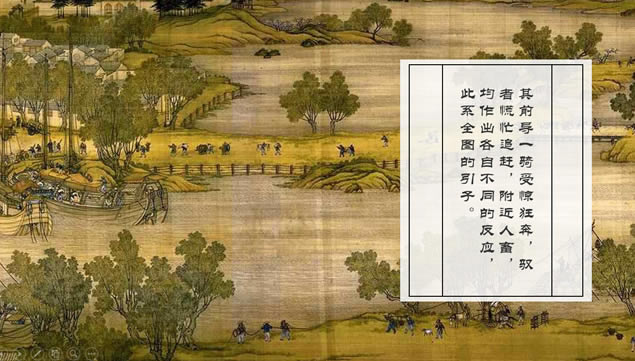 其前导一骑受惊狂奔，驭
者慌忙追赶，附近人畜，
均作出各自不同的反应，
此系全图的引子。